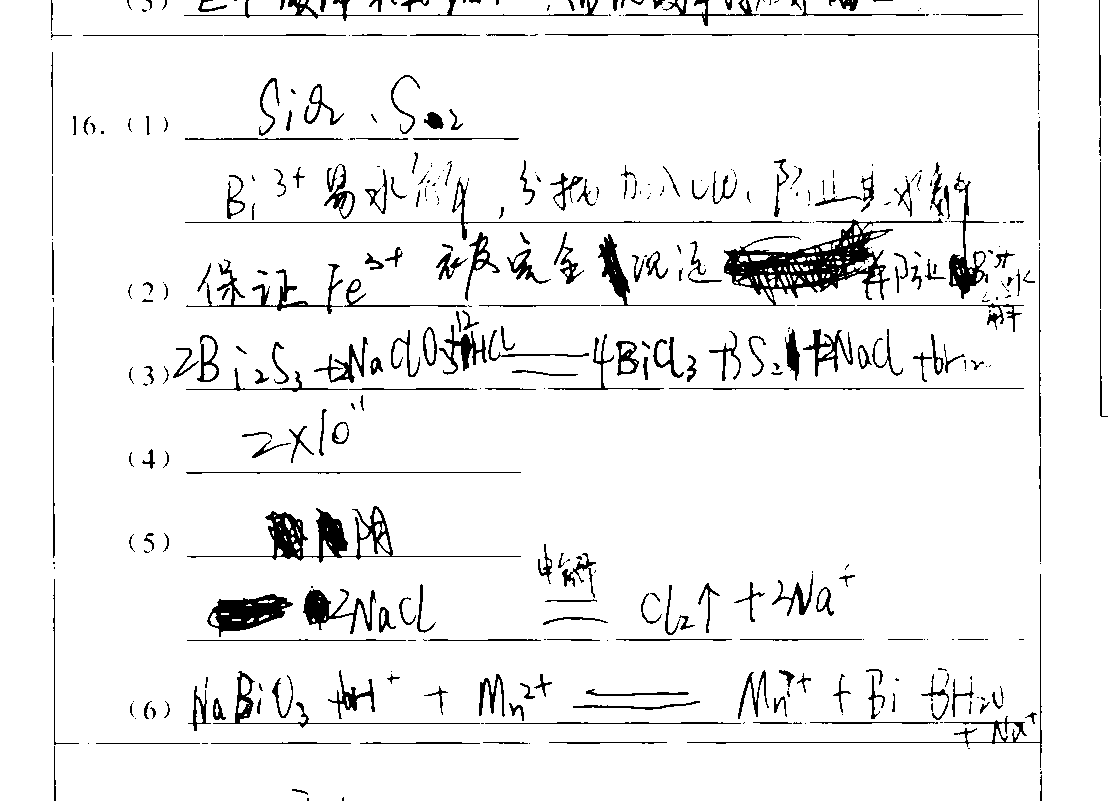 16.(1) SiO2、SO2
Bi3+易水解,分批加入UO,防止其水解
(2) 保证Fe3+ 被完全沉淀 并防止Bi3+水解
(3) 2Bi2S3+2NaClO3+12HCl══4BiCl3+3S2+2NaCl+6H2O
(4) 2×10^11
(5) 阴
2NaCl 电解══ Cl2↑+2Na+
(6) NaBiO3+6H+ + Mn2+ ══ Mn7+ + Bi+3H2O
+Na+